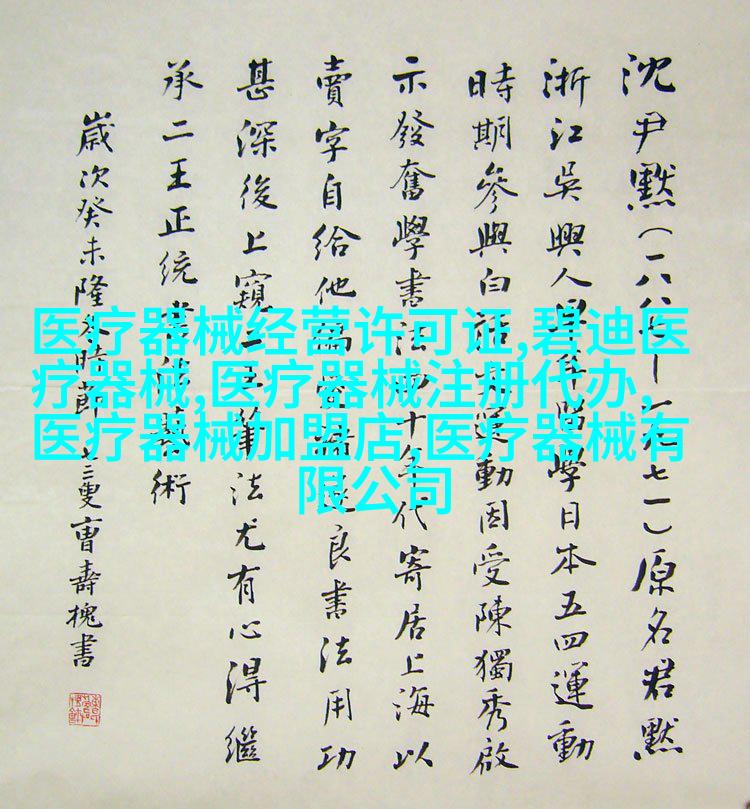 沈尹默(一八八七—一九七一)原名君默
浙江吳興人早年留學日本五四運動
時期參與白話文運動因受陳獨秀啟
示發奮學書法四十年代寄居上海以
賣字自給他為褚遂良書法用功
甚深後上窺二王筆法尤有心得繼
承二王正統書法藝術
歲次癸未隆冬時節 七三叟曹壽槐書
医疗器械经营许可证,碧迪医
疗器械,医疗器械注册代办,
医疗器械加盟店,医疗器械有
限公司